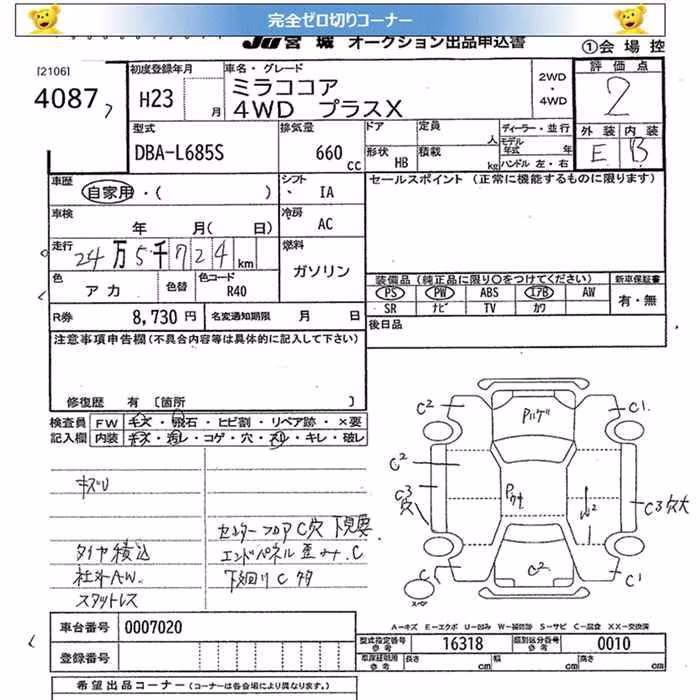 完全ゼロ切りコーナー
JU 宮城 オークション出品申込書
①会場控
[2106]
4087
初度登録年月
H23 月
車名・グレード
ミラココア
4WD プラスX
2WD
・
4WD
評価点
2
外装 内装
E B
型式
DBA-L685S
排気量
660 cc
ドア
形状 HB
定員 人
積載 kg
ディーラー・並行
モデル年式 年
ハンドル 左・右
車歴
自家用・( )
シフト
IA
セールスポイント (正常に機能するものに限ります)
車検
年 月( 日)
冷房
AC
走行
24万5千724km
燃料
ガソリン
色
アカ
色替
色コード
R40
装備品(純正品に限り○をつけてください)
新車保証書
PS PW ABS エアB AW
SR ナビ TV カワ
有・無
R券 8,730円
名変通知期限 月 日
後日品
注意事項申告欄(不具合内容等は具体的に記入して下さい)
修復歴 有 [箇所 ]
検査員
記入欄
FW キズ・飛石・ヒビ割・リペア跡・×要
内装 キズ・汚レ・コゲ・穴・スレ・キレ・破レ
キズU
タイヤ積込
社外A.W.
スタットレス
センターフロアC穴 下見要
エンドパネル歪み.C
下廻りC多
C2
C1
Pハゲ
C2
C3
穴
Pクサ
W2
C3穴大
C1
C2
C1
スペア
A-キズ E-エクボ U-凹み W-補修跡 S-サビ C-腐食 XX-交換済
車台番号 0007020
登録番号
型式指定番号
参考
16318
類別区分番号
参考
0010
車庫証明用
参考
長さ cm
幅 cm
高さ cm
希望出品コーナー(コーナーは各会場により異なります)